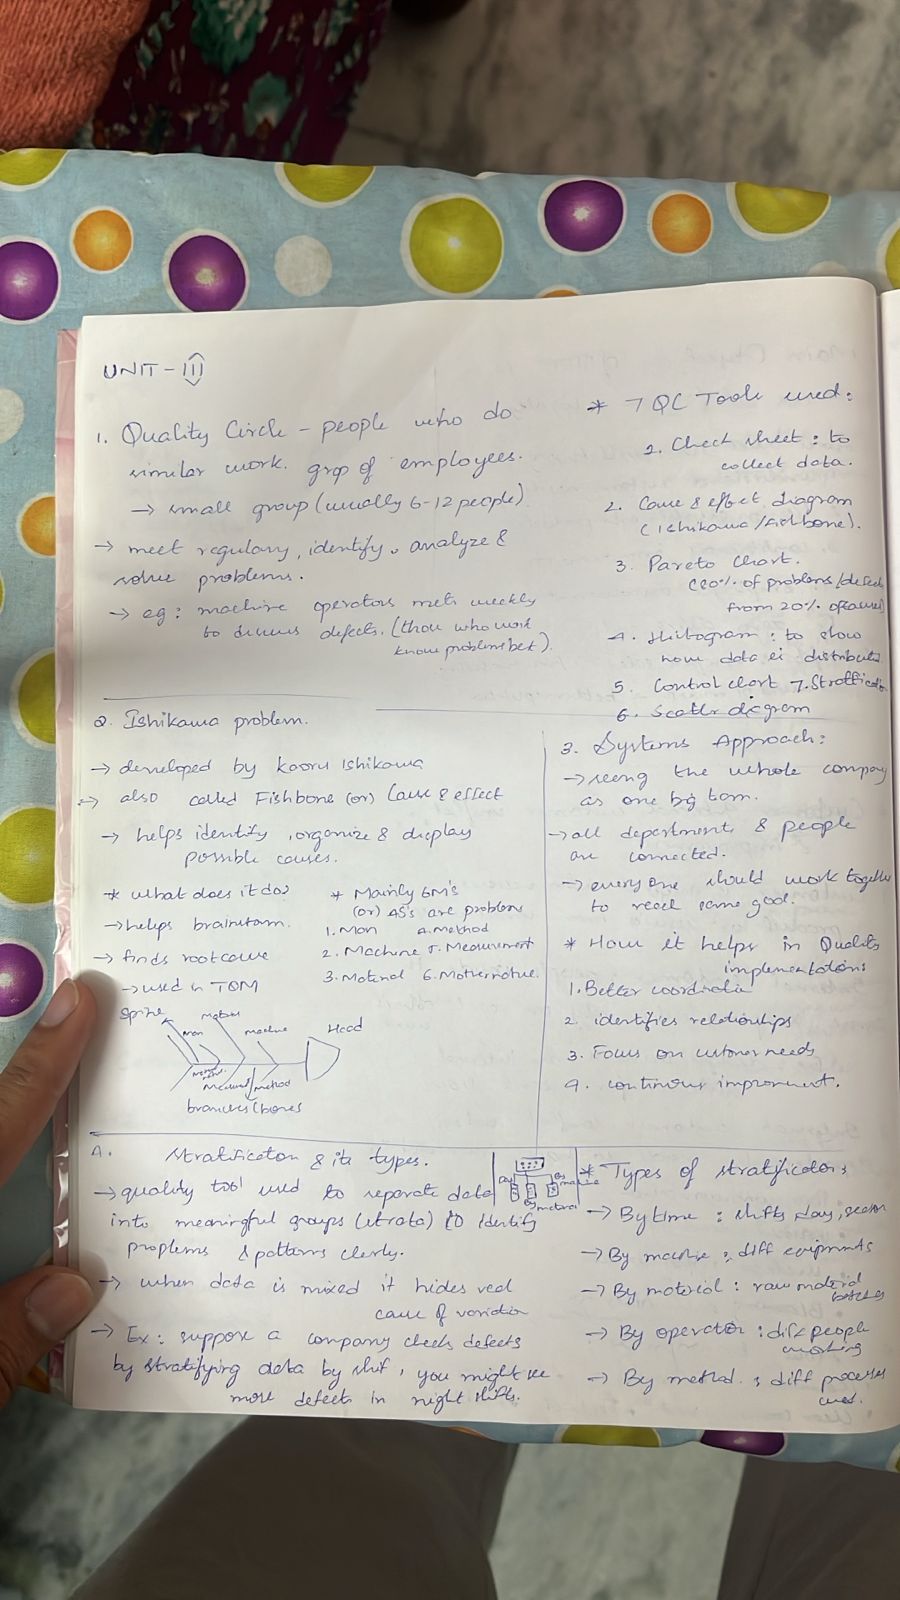 UNIT - III
1. Quality Circle - people who do
similar work. grop of employees.
→ small group (usually 6-12 people)
→ meet regulary, identify, analyze &
solve problems.
→ eg: machine operators mets weekly
to discuss defects. (thou who work
know problems bet).
* 7 QC Tools used:
1. Check sheet: to
collect data.
2. Cause & effect diagram
(Ishikawa/Fishbone).
3. Pareto Chart.
(80% of problems/defects
from 20% of causes)
4. Histogram: to show
how data is distributed
5. Control chart 7. Stratification
6. Scatter diagram
2. Ishikawa problem.
→ developed by kaoru Ishikawa
→ also called Fishbone (or) Cause & effect
→ helps identify, organize & display
possible causes.
* what does it do?
→ helps brainstorm.
→ finds root cause
→ used in TQM
* Mainly 6M's
(or) are problems
1. Man 4. Method
2. Machine 5. Measurement
3. Material 6. Mother nature.
Spine
Man
machine
Head
method
branches (bones
3. Systems Approach:
→ seeing the whole company
as one big team.
→ all departments & people
are connected.
→ everyone should work together
to reach same goal.
* How it helps in Quality
implementation:
1. Better coordination
2. identifies relationships
3. Focus on customer needs
4. continuous improvement.
4. Stratification & its types.
→ quality tool used to seperate data
into meaningful groups (strata) to identify
problems & patterns clearly.
→ when data is mixed it hides real
cause of variation
→ Ex: suppose a company checks defects
by stratifying data by shift, you might see
more defects in night shifts.
By machine
By material
* Types of stratification:
→ By time: shifts day, season
→ By machine: diff equipments
→ By material: raw material
batches
→ By operator: diff people
working
→ By method: diff processes
used.